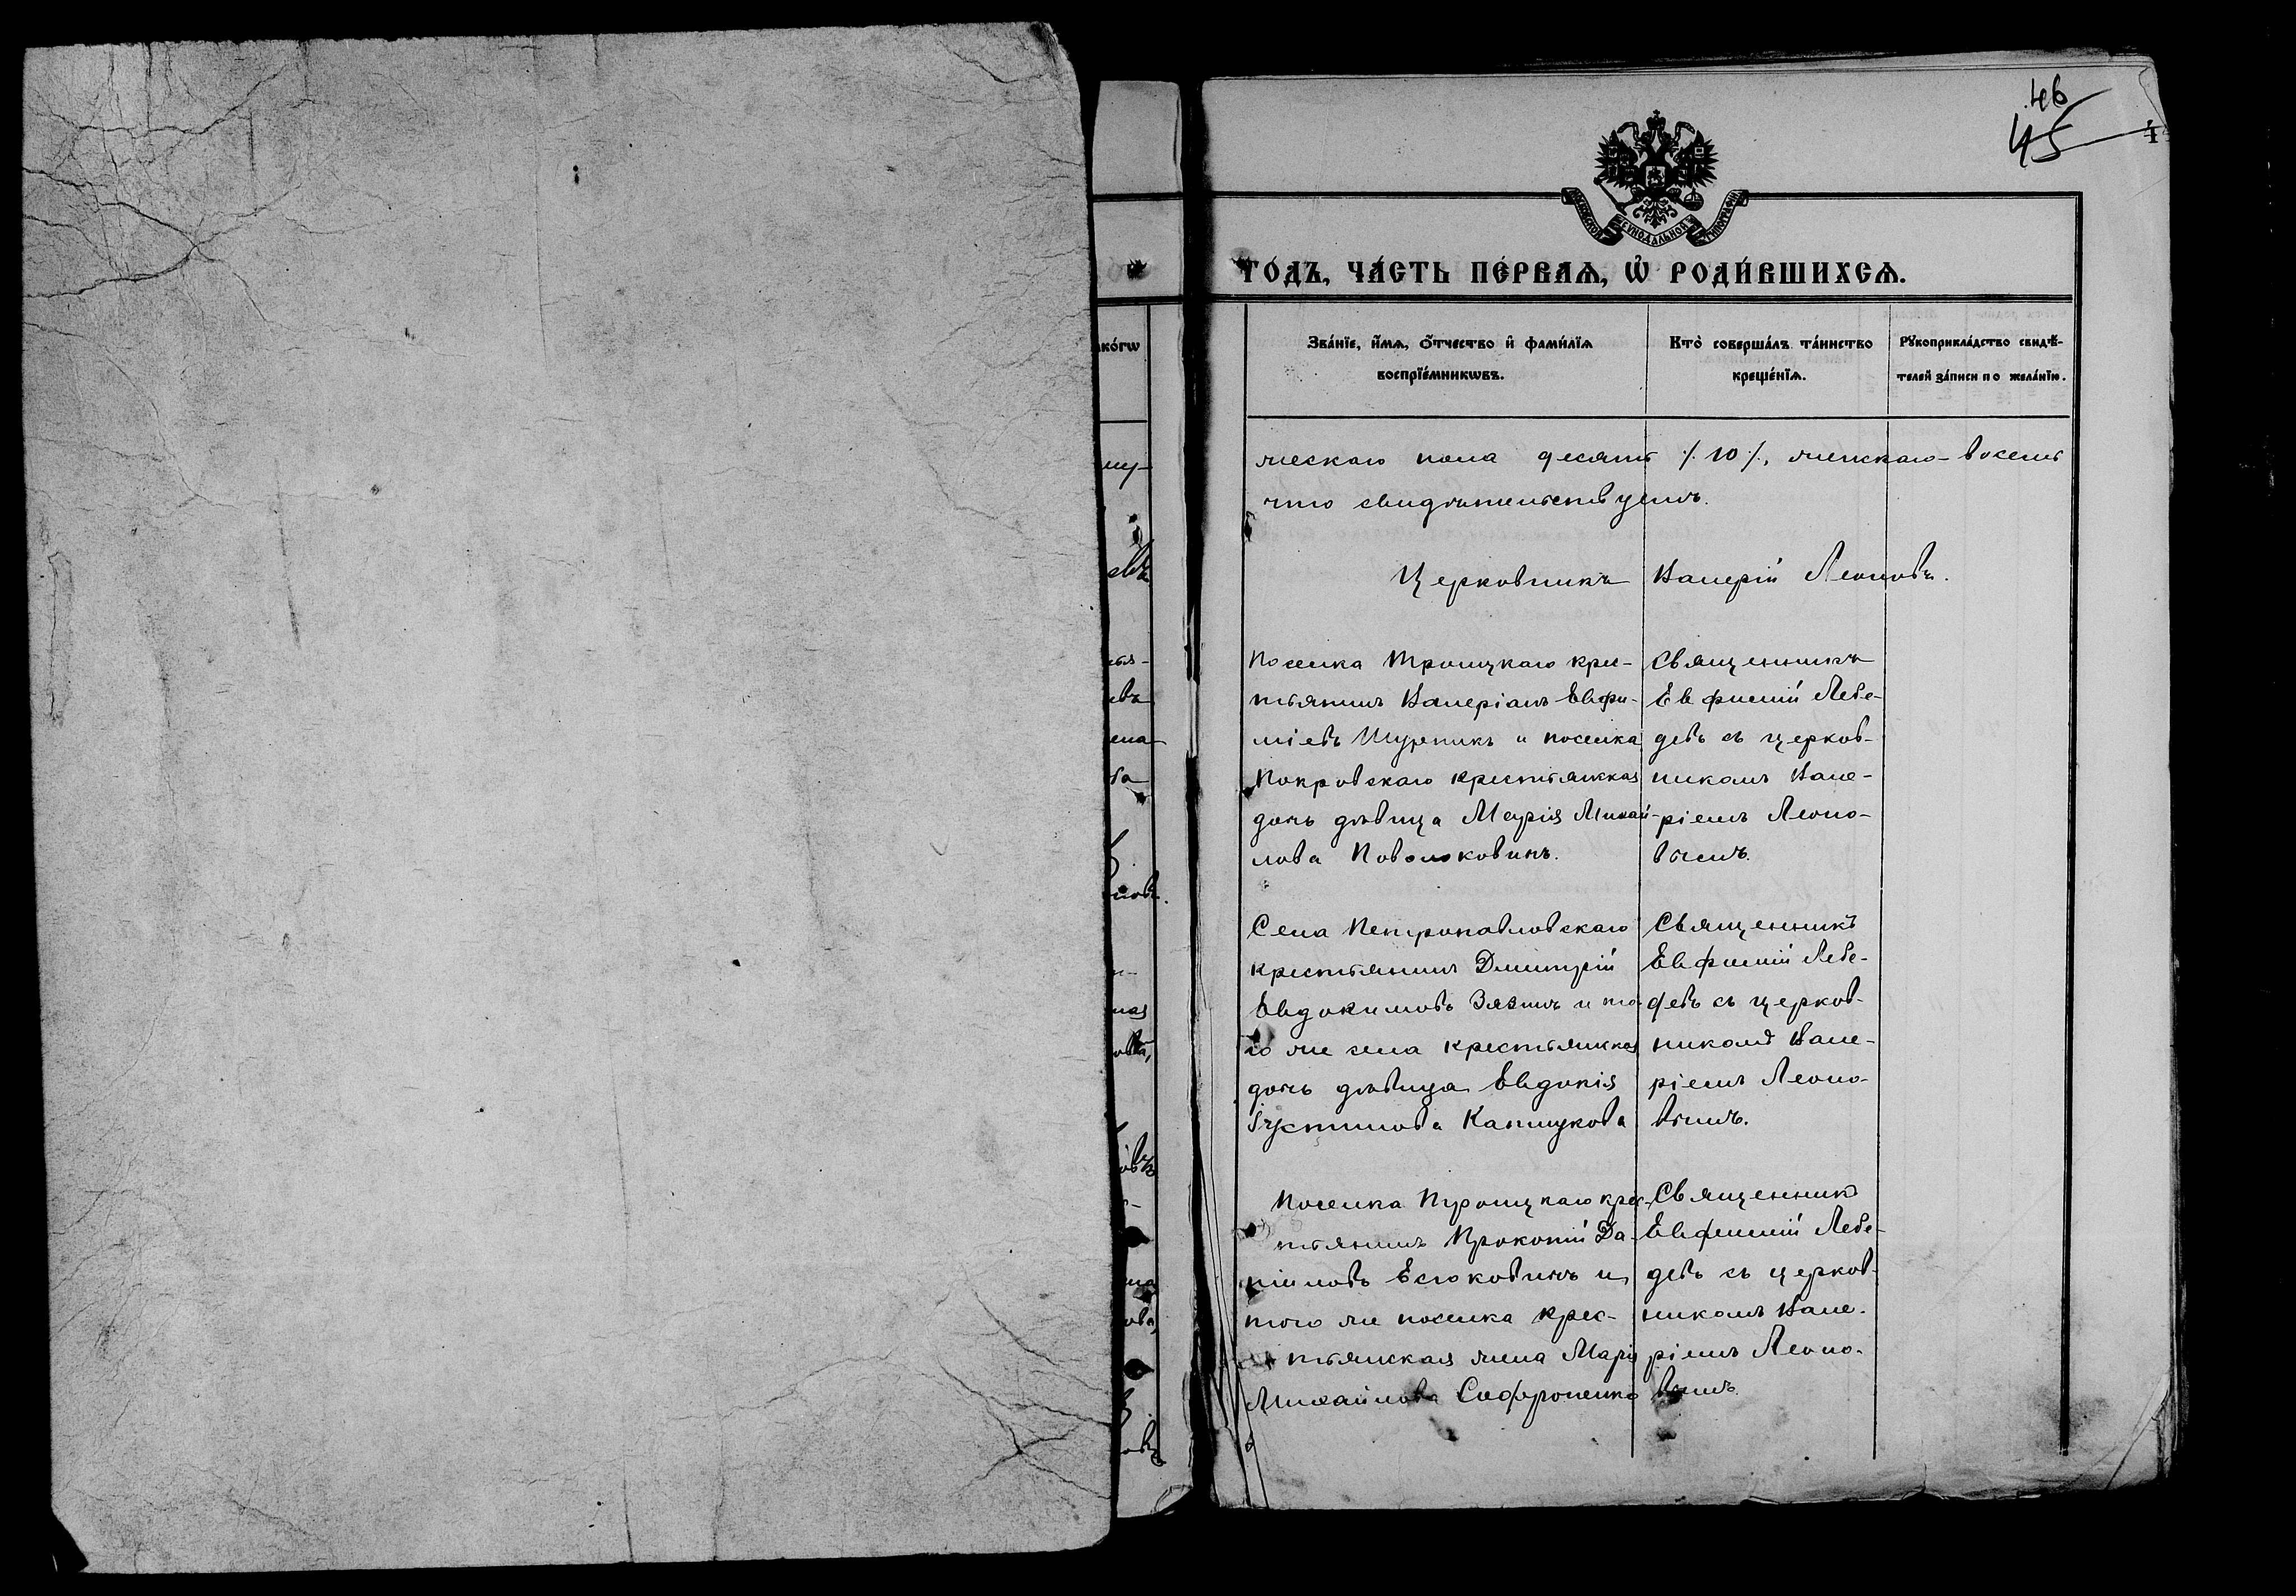 46
45
МОСКОВСКОЙ СѴНОДАЛЬНОЙ ТИПОГРАФІИ
ГО́ДЪ, ЧА́СТЬ ПЕ́РВАѦ, Ѽ РОДИ́ВШИХСѦ.
Зва́нїе, и҆́мѧ, ѻ҆́тчество и҆ фами́лїѧ
воспрїе́мникѡвъ.
Кто̀ соверша́лъ та́инство
креще́нїѧ.
Рꙋкоприкла́дство свидѣ́-
телей за́писи по жела́нїю.
ко́гѡ
жескаго пола десять /.10/., женскаго - восемь
что свидѣтельствуемъ.
Церковникъ Валерій Леоновъ.
Поселка Троицкаго крес-
тьянинъ Валеріанъ Евфи-
міевъ Шурпикъ и поселка
Покровскаго крестьянская
дочь дѣвица Марія Михай-
лова Поволоковичъ.
Священникъ
Евфимій Лебе-
девъ съ церков-
никомъ Вале-
ріемъ Леоно-
вымъ.
Села Петропавловскаго
крестьянинъ Димитрій
Евдокимовъ Зязинъ и то-
го же села крестьянская
дочь дѣвица Евдокія
Іустинова Капшукова
Священникъ
Евфимій Лебе-
девъ съ церков-
никомъ Вале-
ріемъ Леоно-
вымъ.
Поселка Троицкаго крес-
тьянинъ Прокопій Да-
ніиловъ Есюковичъ и
того же поселка крес-
тьянская жена Марія
Михайлова Софроненко
Священникъ
Евфимій Лебе-
девъ съ церков-
никомъ Вале-
ріемъ Леоно-
вымъ.